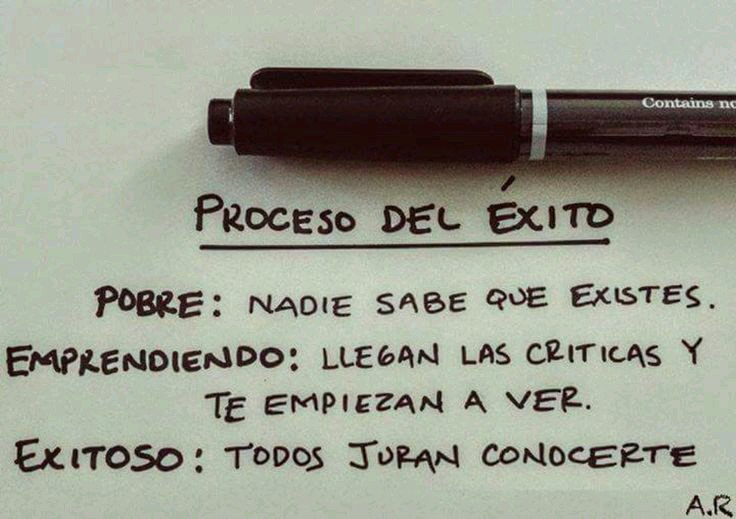 Contains no
PROCESO DEL ÉXITO
POBRE: NADIE SABE QUE EXISTES.
EMPRENDIENDO: LLEGAN LAS CRITICAS Y
TE EMPIEZAN A VER.
EXITOSO: TODOS JURAN CONOCERTE
A.R